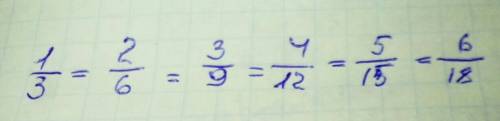 1/3 = 2/6 = 3/9 = 4/12 = 5/15 = 6/18